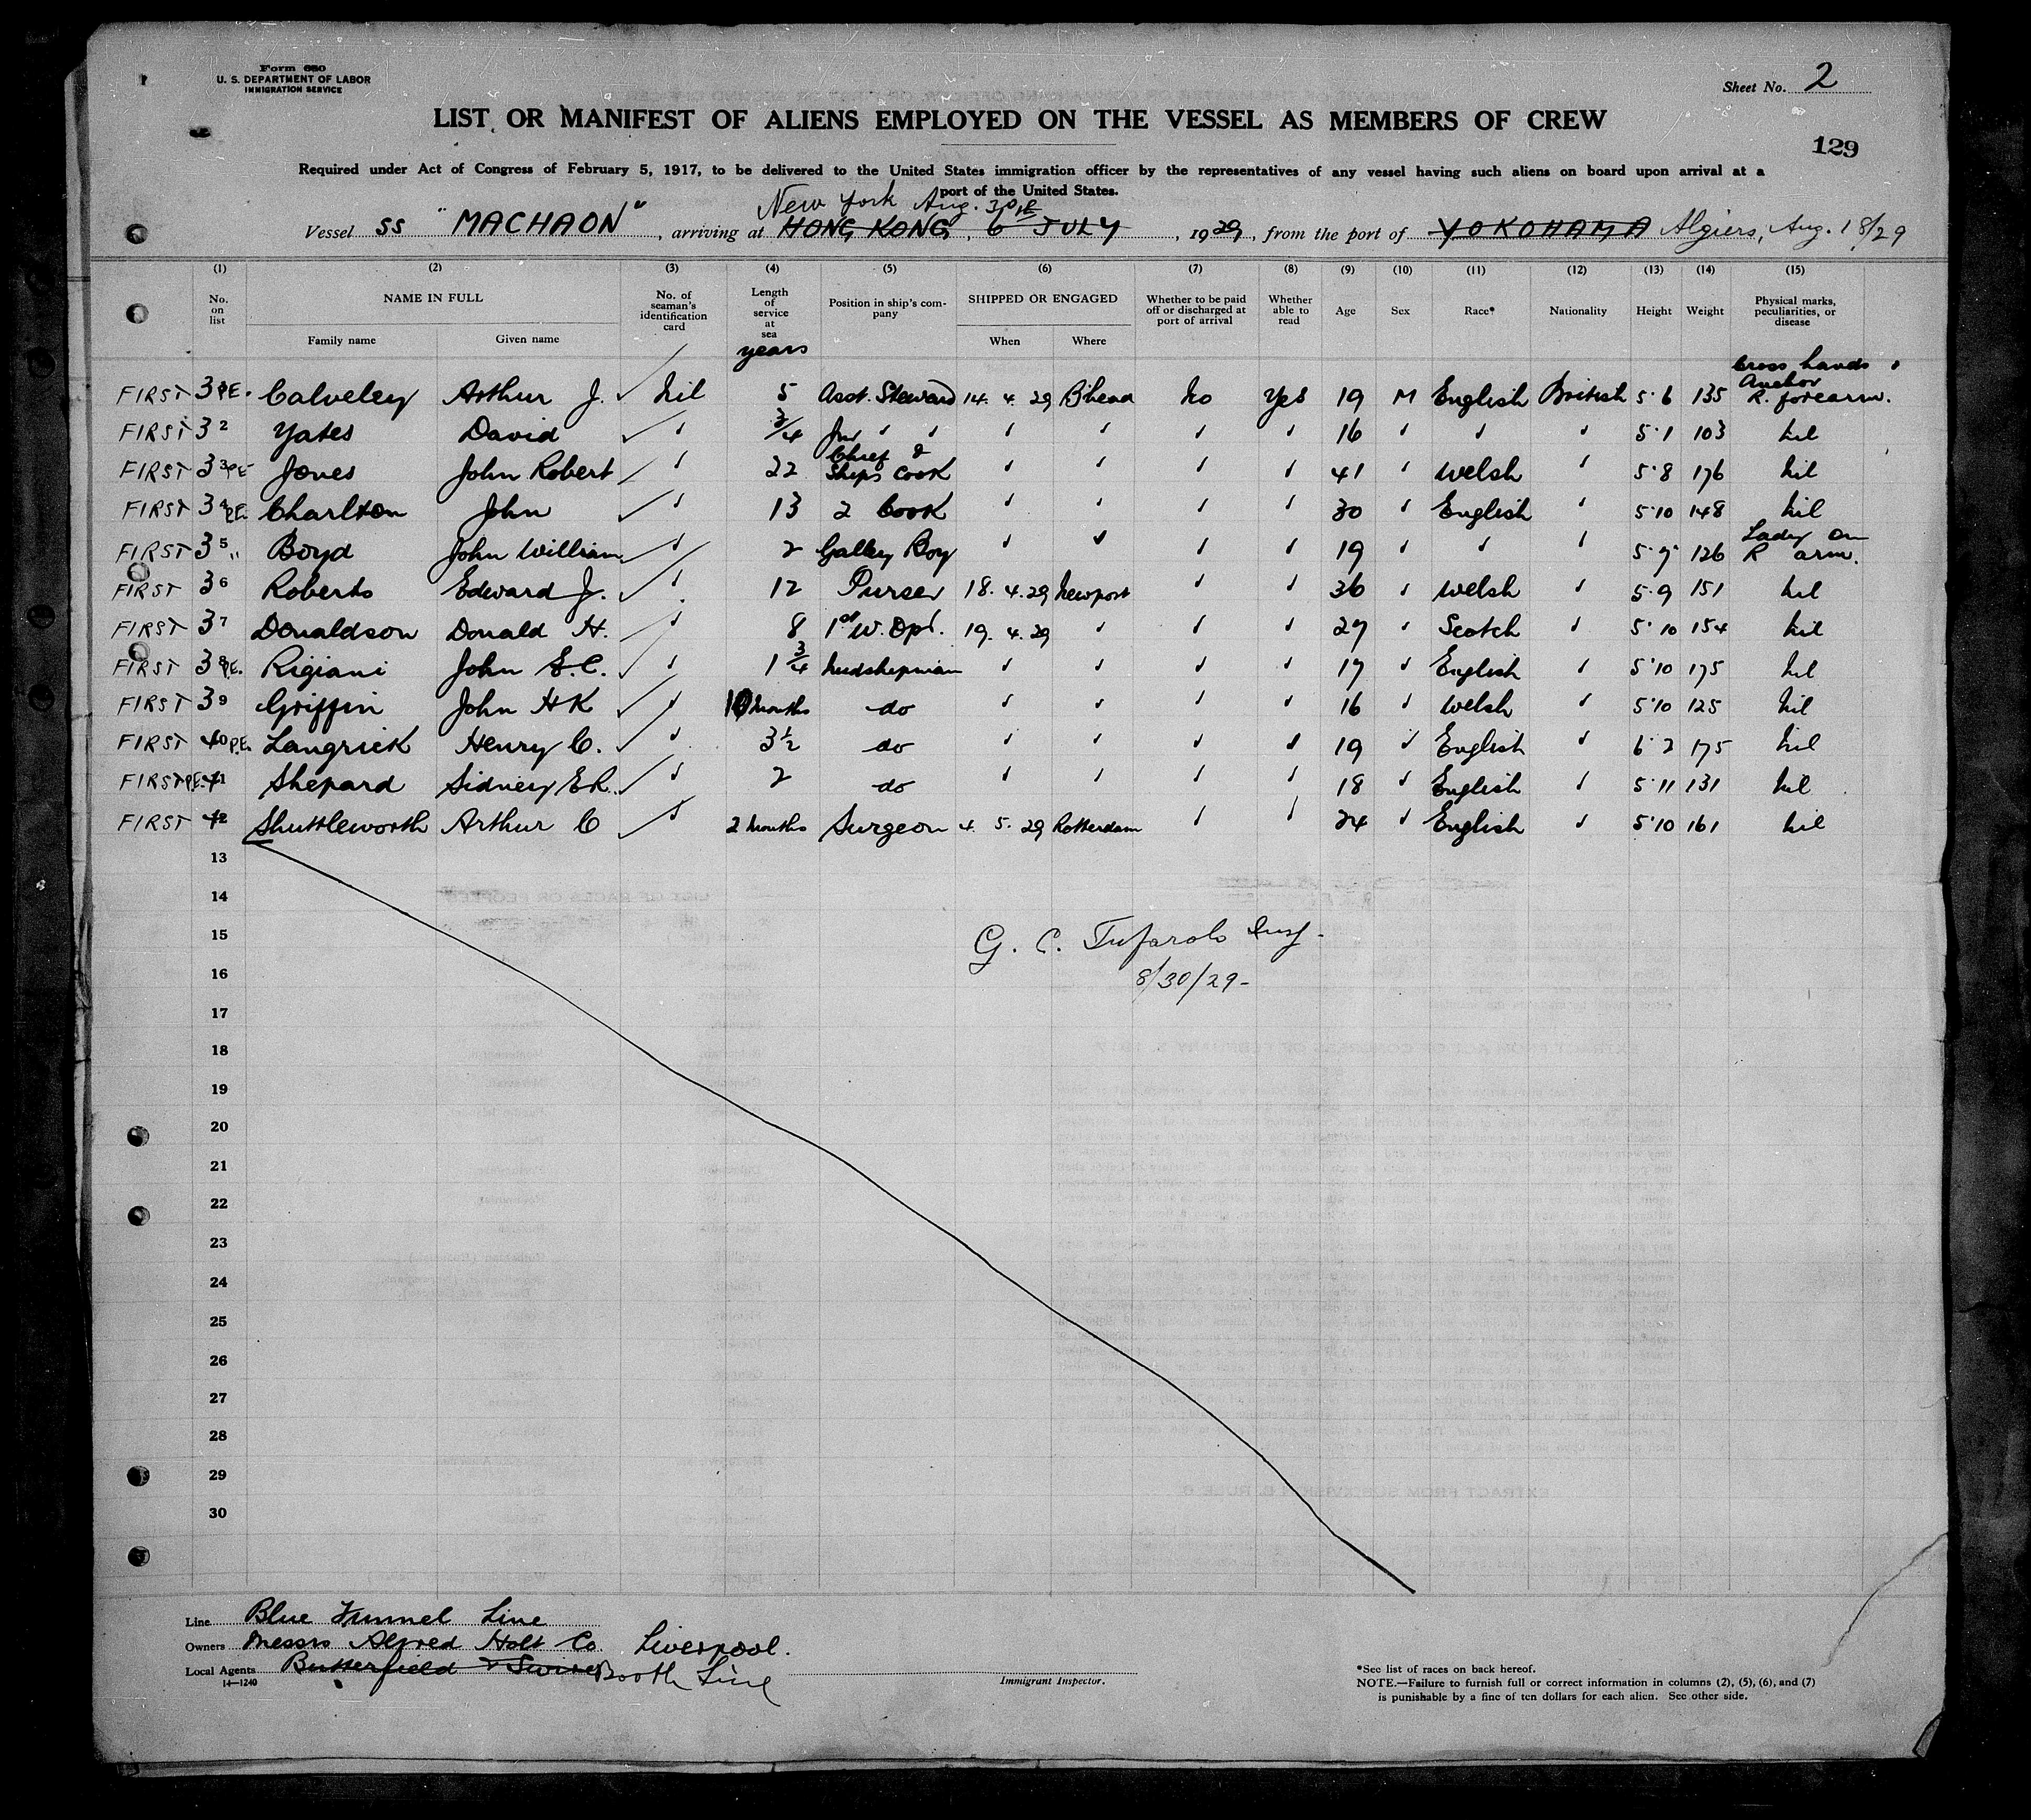 Form 680
U. S. DEPARTMENT OF LABOR
IMMIGRATION SERVICE
Sheet No. 2
LIST OR MANIFEST OF ALIENS EMPLOYED ON THE VESSEL AS MEMBERS OF CREW
129
Required under Act of Congress of February 5, 1917, to be delivered to the United States immigration officer by the representatives of any vessel having such aliens on board upon arrival at a
port of the United States.
New York Aug. 30th
Vessel SS "MACHAON", arriving at HONG KONG, 6 JULY, 1929, from the port of YOKOHAMA Algiers, Aug. 18/29
(1) (2) (3) (4) (5) (6) (7) (8) (9) (10) (11) (12) (13) (14) (15)
No. on list NAME IN FULL Family name Given name No. of seaman's identification card Length of service at sea Position in ship's company SHIPPED OR ENGAGED When Where Whether to be paid off or discharged at port of arrival Whether able to read Age Sex Race* Nationality Height Weight Physical marks, peculiarities, or disease
years
FIRST 31 P.E. Calveley Arthur J. ✓ Nil 5 Asst. Steward 14. 4. 29 B'head No Yes 19 M English British 5·6 135 Cross hands Anchor R. forearm.
FIRST 32 Yates David ✓ ✓ 3/4 Jnr ✓ ✓ ✓ ✓ ✓ ✓ 16 ✓ ✓ ✓ 5·1 103 Nil
FIRST 33 PE Jones John Robert ✓ ✓ 22 Chief & Ships Cook ✓ ✓ ✓ ✓ 41 ✓ Welsh ✓ 5·8 176 Nil
FIRST 34 P.E. Charlton John ✓ ✓ 13 2 Cook ✓ ✓ ✓ ✓ 30 ✓ English ✓ 5·10 148 Nil
FIRST 35 " Boyd John William ✓ ✓ 2 Galley Boy ✓ ✓ ✓ ✓ 19 ✓ ✓ ✓ 5·7 126 Lady on R arm.
FIRST 36 Roberts Edward J. ✓ ✓ 12 Purser 18. 4. 29 Newport ✓ ✓ 36 ✓ Welsh ✓ 5·9 151 Nil
FIRST 37 Donaldson Donald H. ✓ ✓ 8 1st W. Opt. 19. 4. 29 ✓ ✓ ✓ 27 ✓ Scotch ✓ 5·10 154 Nil
FIRST 38 P.E. Rigiani John S.C. ✓ ✓ 1 3/4 Midshipman ✓ ✓ ✓ ✓ 17 ✓ English ✓ 5·10 175 Nil
FIRST 39 Griffin John H K ✓ ✓ 10 months do ✓ ✓ ✓ ✓ 16 ✓ Welsh ✓ 5·10 125 Nil
FIRST 40 P.E. Langrick Henry C. ✓ ✓ 3 1/2 do ✓ ✓ ✓ ✓ 19 ✓ English ✓ 6·2 175 Nil
FIRST P.E. 41 Shepard Sidney E R. ✓ ✓ 2 do ✓ ✓ ✓ ✓ 18 ✓ English ✓ 5·11 131 Nil
FIRST 42 Shuttleworth Arthur C ✓ ✓ 2 months Surgeon 4. 5. 29 Rotterdam ✓ ✓ 24 ✓ English ✓ 5·10 161 Nil
13
14
15
G. C. Tufarolo Insp.
16
8/30/29-
17
18
19
20
21
22
23
24
25
26
27
28
29
30
Line Blue Funnel Line
Owners Messrs Alfred Holt Co. Liverpool.
Local Agents Butterfield & Swire Booth Line
14—1240
Immigrant Inspector.
*See list of races on back hereof.
NOTE.—Failure to furnish full or correct information in columns (2), (5), (6), and (7)
is punishable by a fine of ten dollars for each alien. See other side.